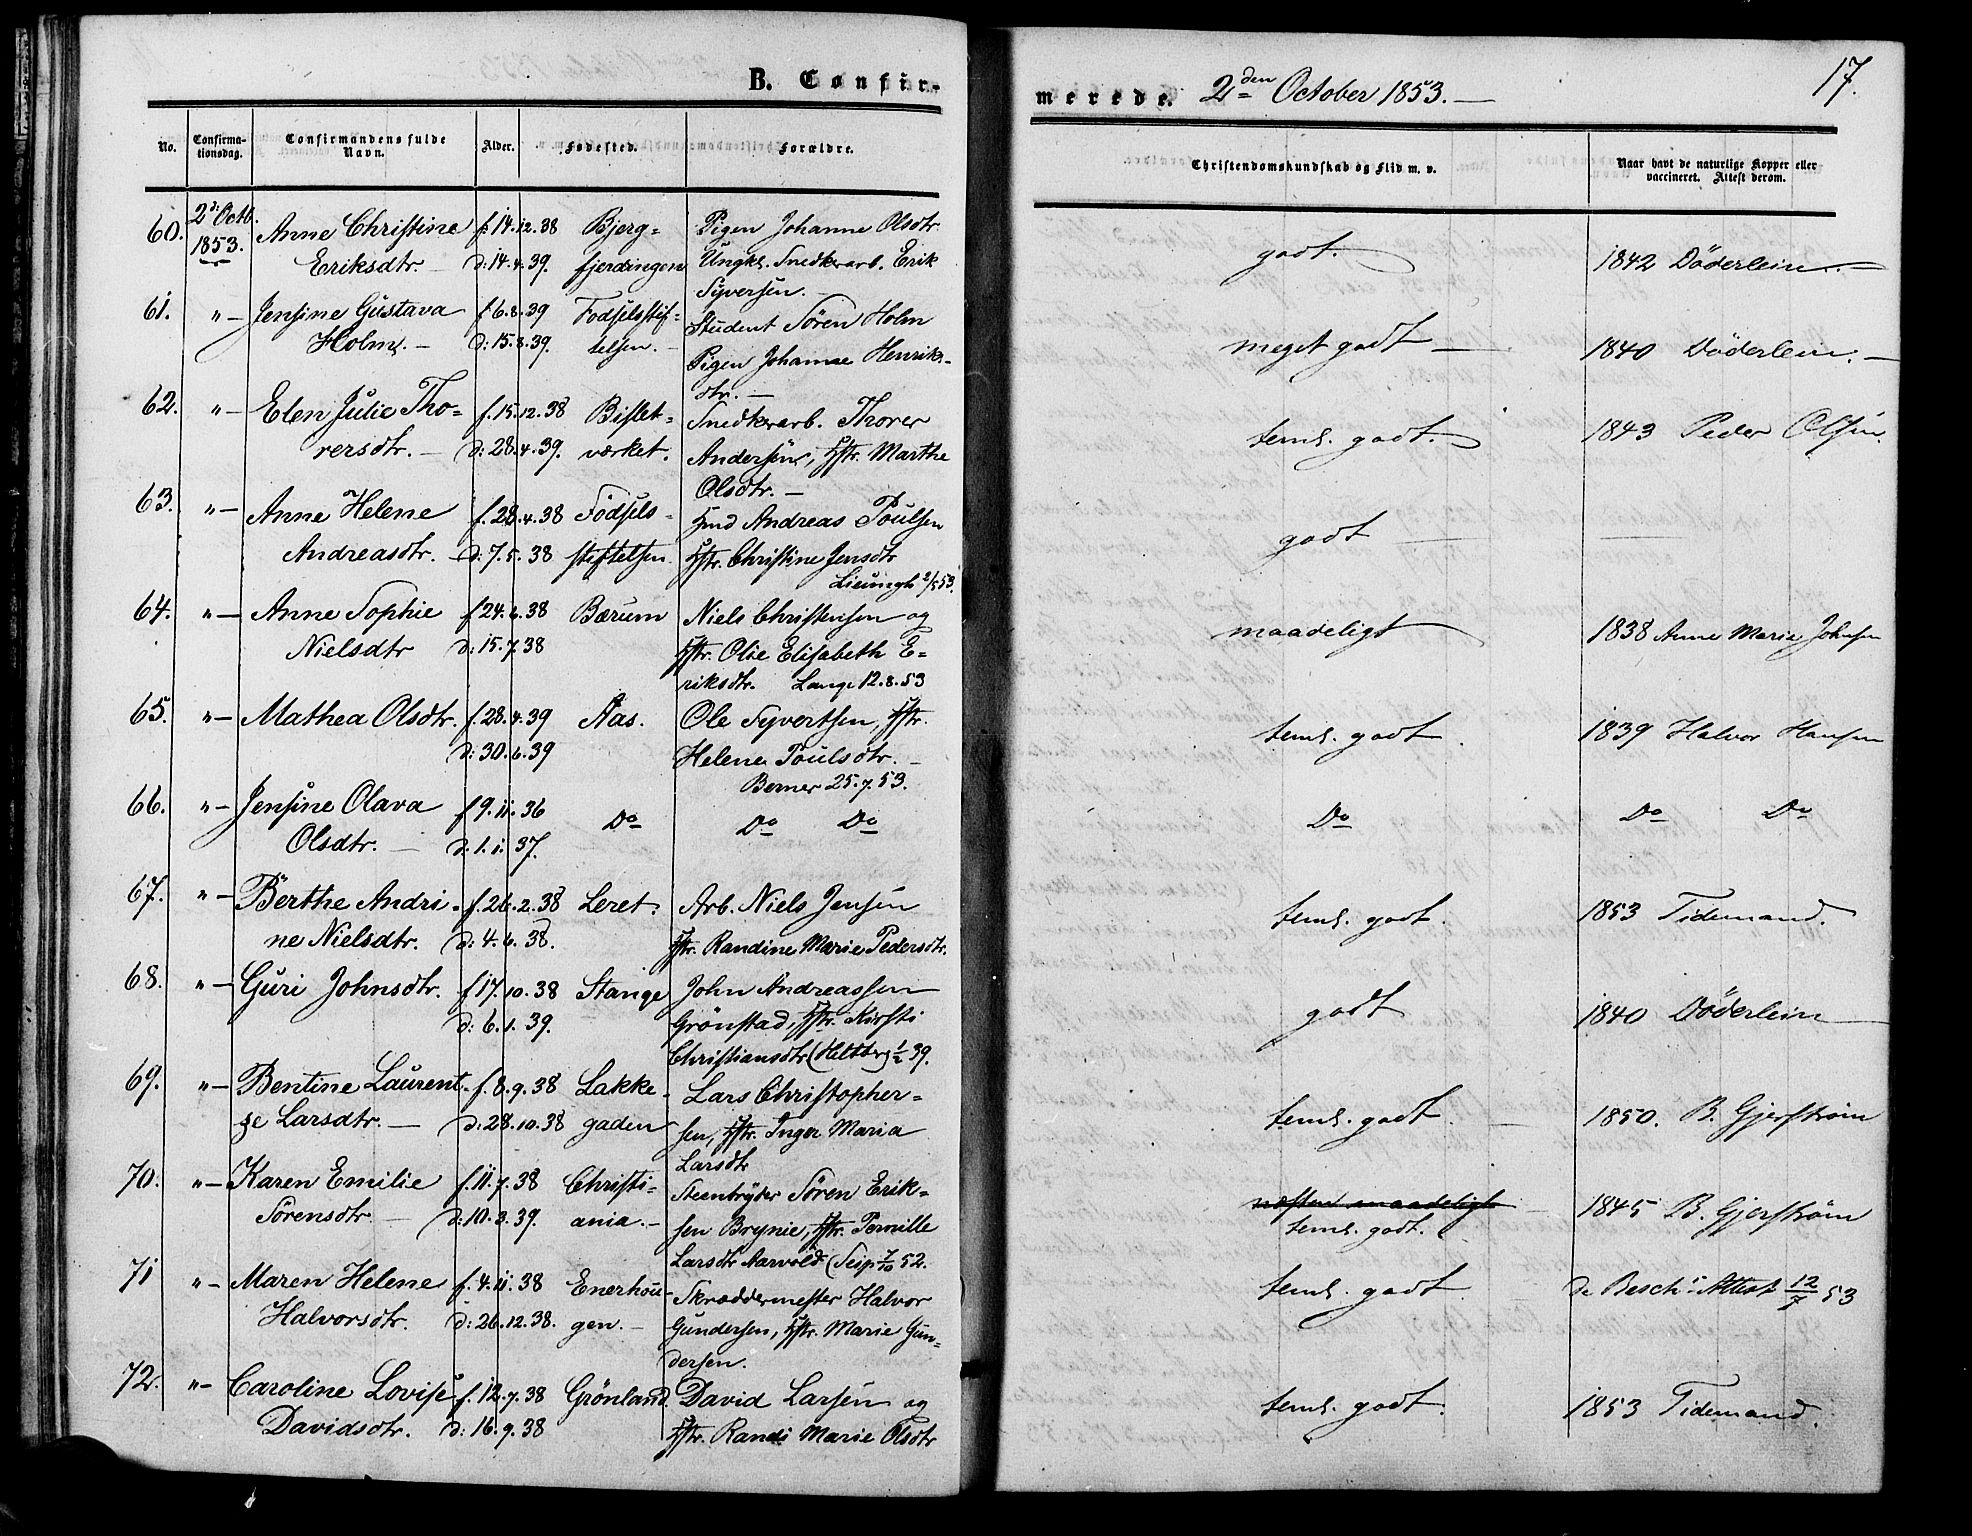 B. Confir-
No. Confirma-tionsdag. Confirmandens fulde Navn. Alder. Fødested. Forældre.
60. 2d: Octb. 1853. Anne Christine f: 14.12.38 Bjerg= Pigen Johanne Olsdtr.
Eriksdtr. — d: 14.4.39. fjerdingen Ungk. Snedkerarb. Erik
Syversen. —
61. " — Jensine Gustava f 6.8.39 Fødselsstif= Student Sören Holm
Holm. — d: 15.8.39. telsen. — Pigen Johanne Henriks-
dtr. —
62. " — Elen Julie Tho= f. 15.12.38 Bislet- Snedkerarb. Thorer
rersdtr. — d: 28.4.39. værket. Andersen, Hstr. Marthe
Olsdtr. —
63. " — Anne Helene f. 28.4.38 Födsels- Hmd Andreas Poulsen
Andreasdtr. — d: 7.5.38 stiftelsen Hstr. Christine Jensdtr
2/5 53.
64. " — Anne Sophie f 24.6.38 Bærum Niels Christensen og
Nielsdtr d: 15.7.38 Hstr. Olie Elisabeth E=
riksdtr. Lange 12.8.53
65. " — Mathea Olsdtr. f. 28.4.39 Aas. Ole Syvertsen, Hstr.
d: 30.6.39 Helene Poulsdtr. —
Berner 25.7.53.
66. " — Jensine Olava f 9.11.36 Do Do Do
Olsdtr. — d. 1.1.37.
67. " — Berthe Andri- f. 26.2.38 Leret. Arb. Niels Jensen
ne Nielsdtr. d: 4.6.38. Hstr. Randine Marie Pedersdtr.
68. " — Guri Johnsdtr. f 17.10.38 Stange John Andreassen
d: 6.1.39. Grönstad, Hstr. Kirsti
Christiansdtr (Heltberg 1/2 39.
69. " — Bentine Laurent- f. 8.9.38 Lakke- Lars Christopher=
se Larsdtr. — d: 28.10.38 gaden sen, Hstr. Inger Maria
Larsdtr
70. " — Karen Emilie f. 11.7.38 Christi- Steenbryder Sören Erik=
Sörensdtr. — d: 10.3.39. ania. — sen Brynie, Hstr. Pernille
Larsdtr Aarvold (Seip 7/10 52.
71 " — Maren Helene f. 4.11.38 Enerhou- Skræddermester Halvor
Halvorsdtr. d: 26.12.38. gen. — Gundersen, Hstr. Marie Gun-
dersen.
72. " — Caroline Lovise f. 12.7.38 Grönland. David Larsen og
Davidsdtr. d: 16.9.38 Hstr. Randi Marie Olsdtr
merede. 2den October 1853. — 17.
Christendomskundskab og Flid m. v. Naar havt de naturlige Kopper eller vaccineret. Attest derom.
godt. 1842 Döderlein. —
meget godt — 1840 Döderlein. —
teml. godt. 1843 Peder Olsen.
godt —
maadeligt 1838 Anne Marie Johnsen
teml. godt. 1839 Halvor Hansen
Do Do Do
teml. godt. 1853 Tidemand.
godt 1840 Döderlein
teml. godt. 1850. B. Gjerström
næsten maadeligt
teml. godt. 1845 B. Gjerström
teml. godt. Besch: Attest 12/7 53
teml. godt. 1853 Tidemand.